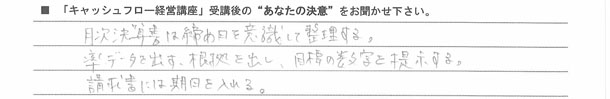 ■ 「キャッシュフロー経営講座」受講後の“あなたの決意”をお聞かせ下さい。
月次決算書は締め日を意識して整理する。
率データを出す、根拠を出し、目標の数字を提示する。
請求書には期日を入れる。